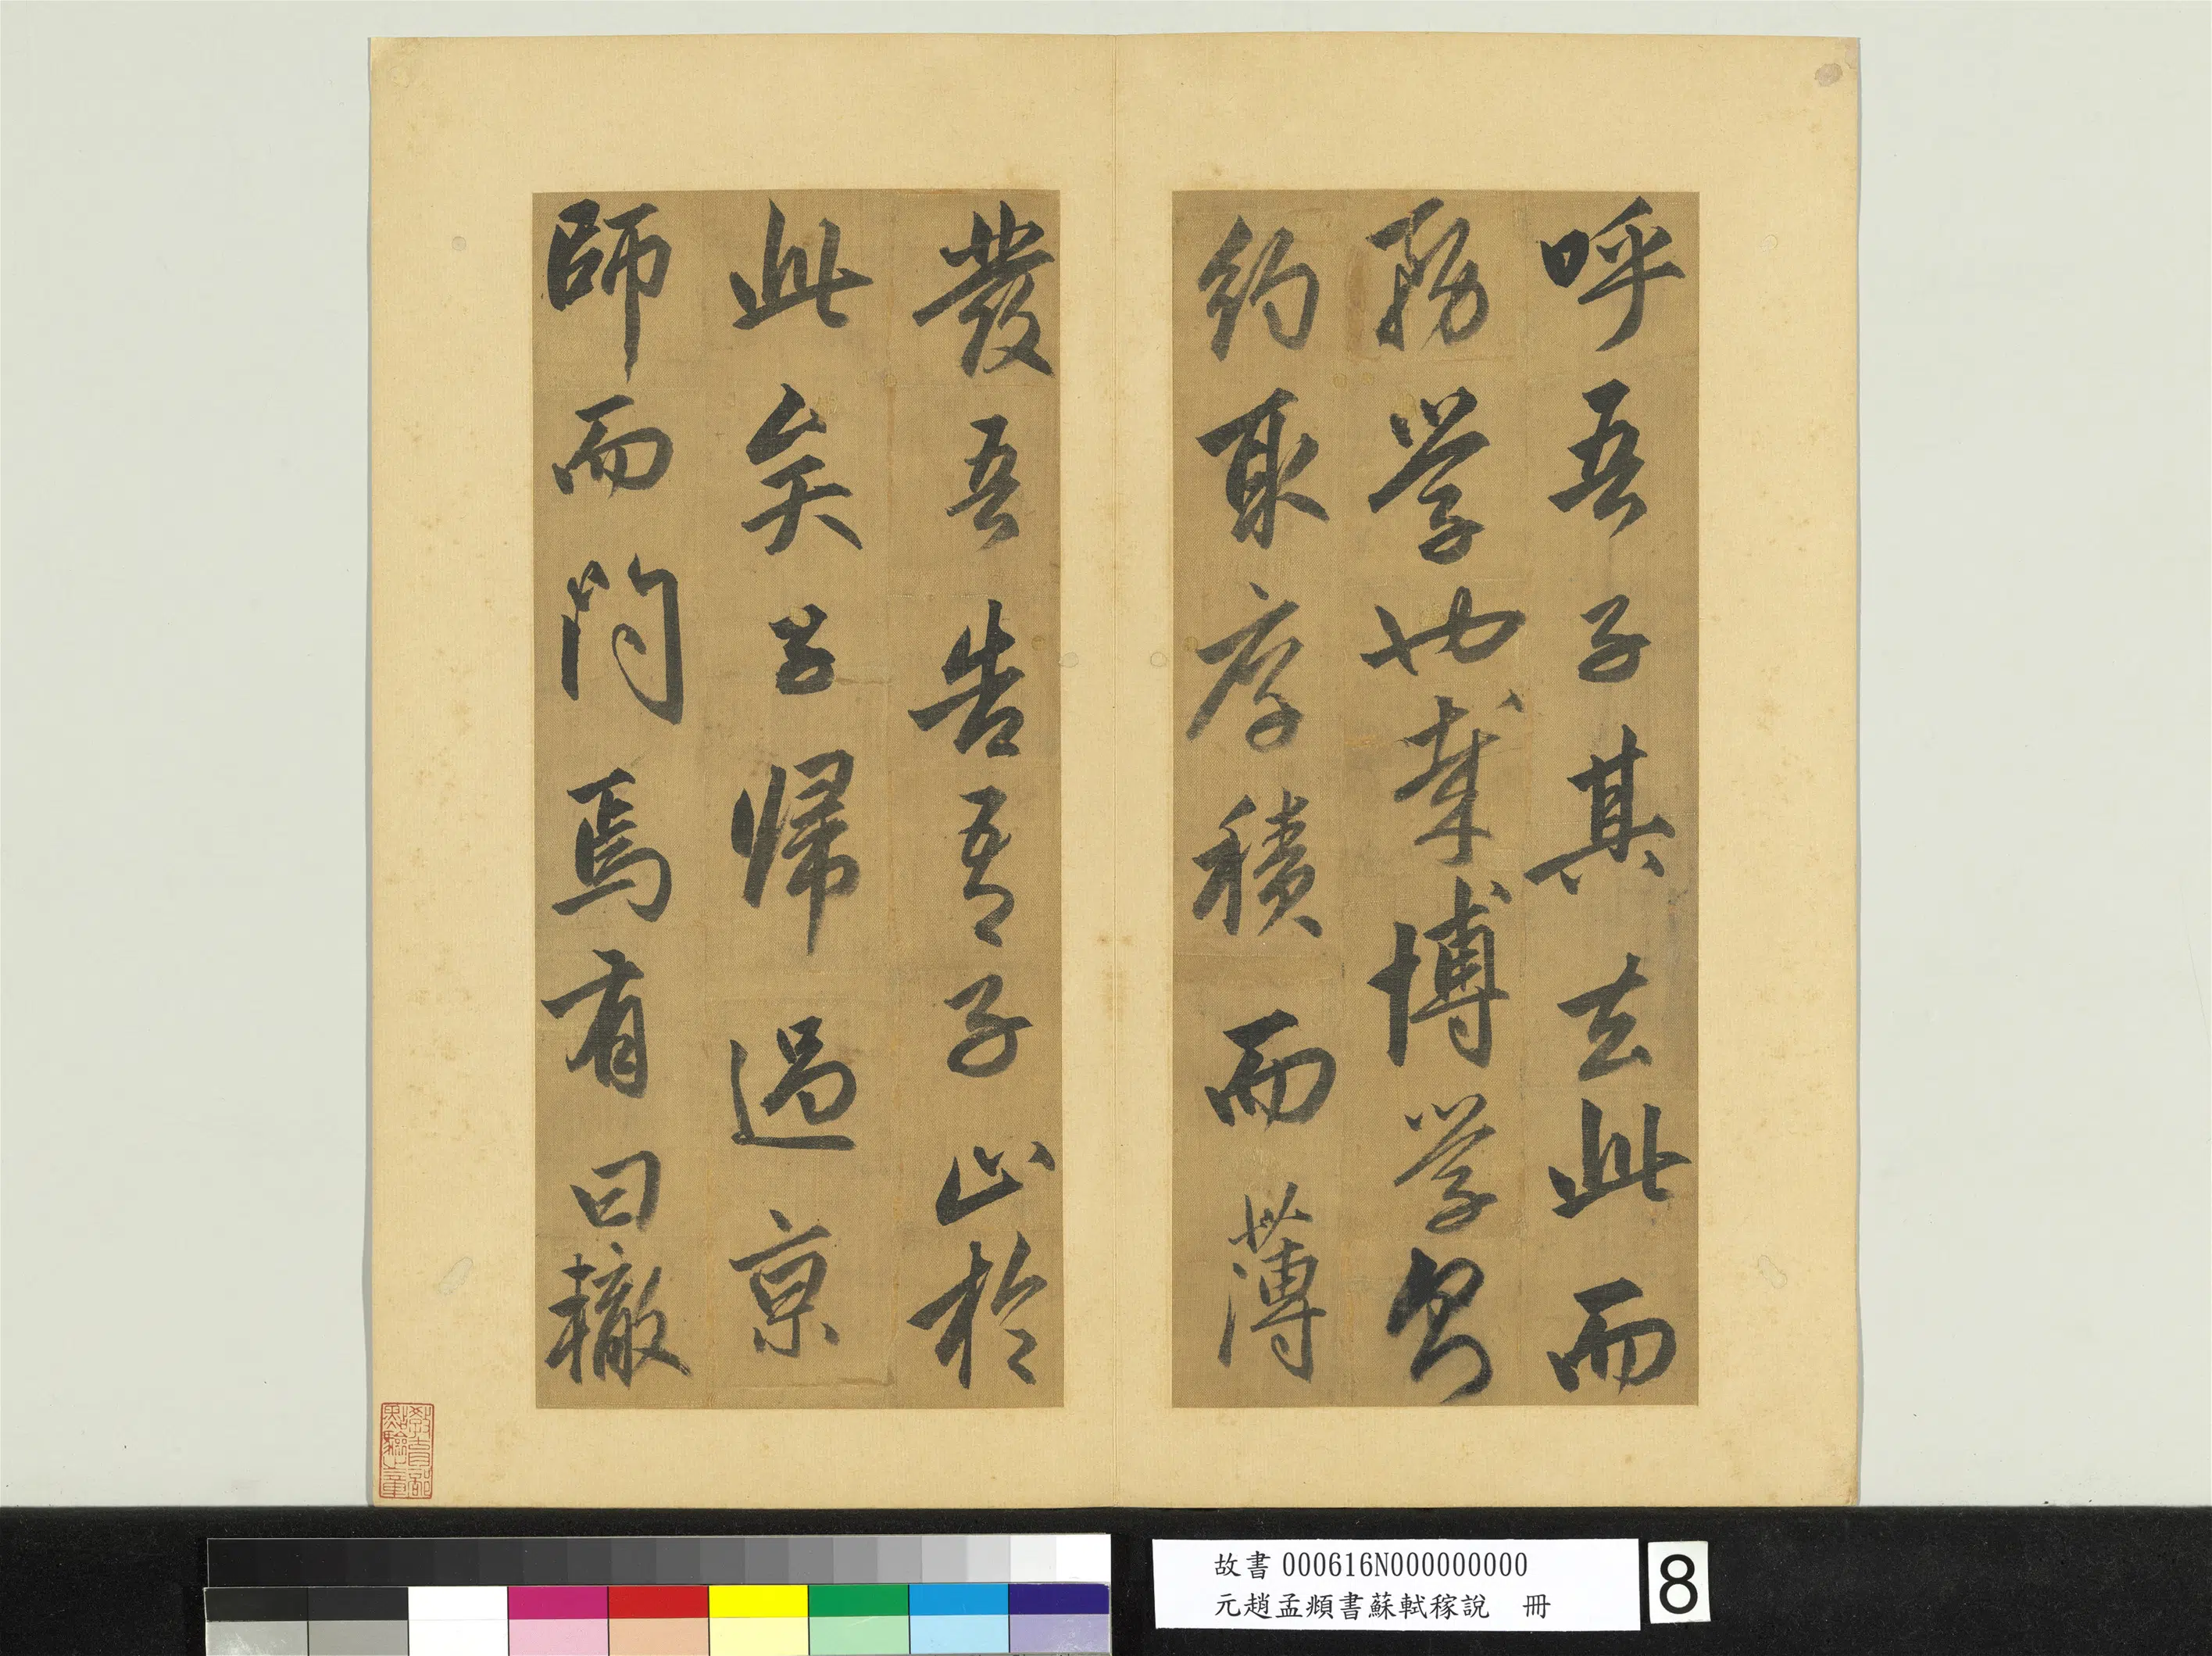 呼吾子其去此而
務學也哉博學而
約取厚積而薄
發吾告吾子止於
此矣子歸過京
師而問焉有曰轍
教育部點驗之章
故書000616N000000000
元趙孟頫書蘇軾稼說　冊
8